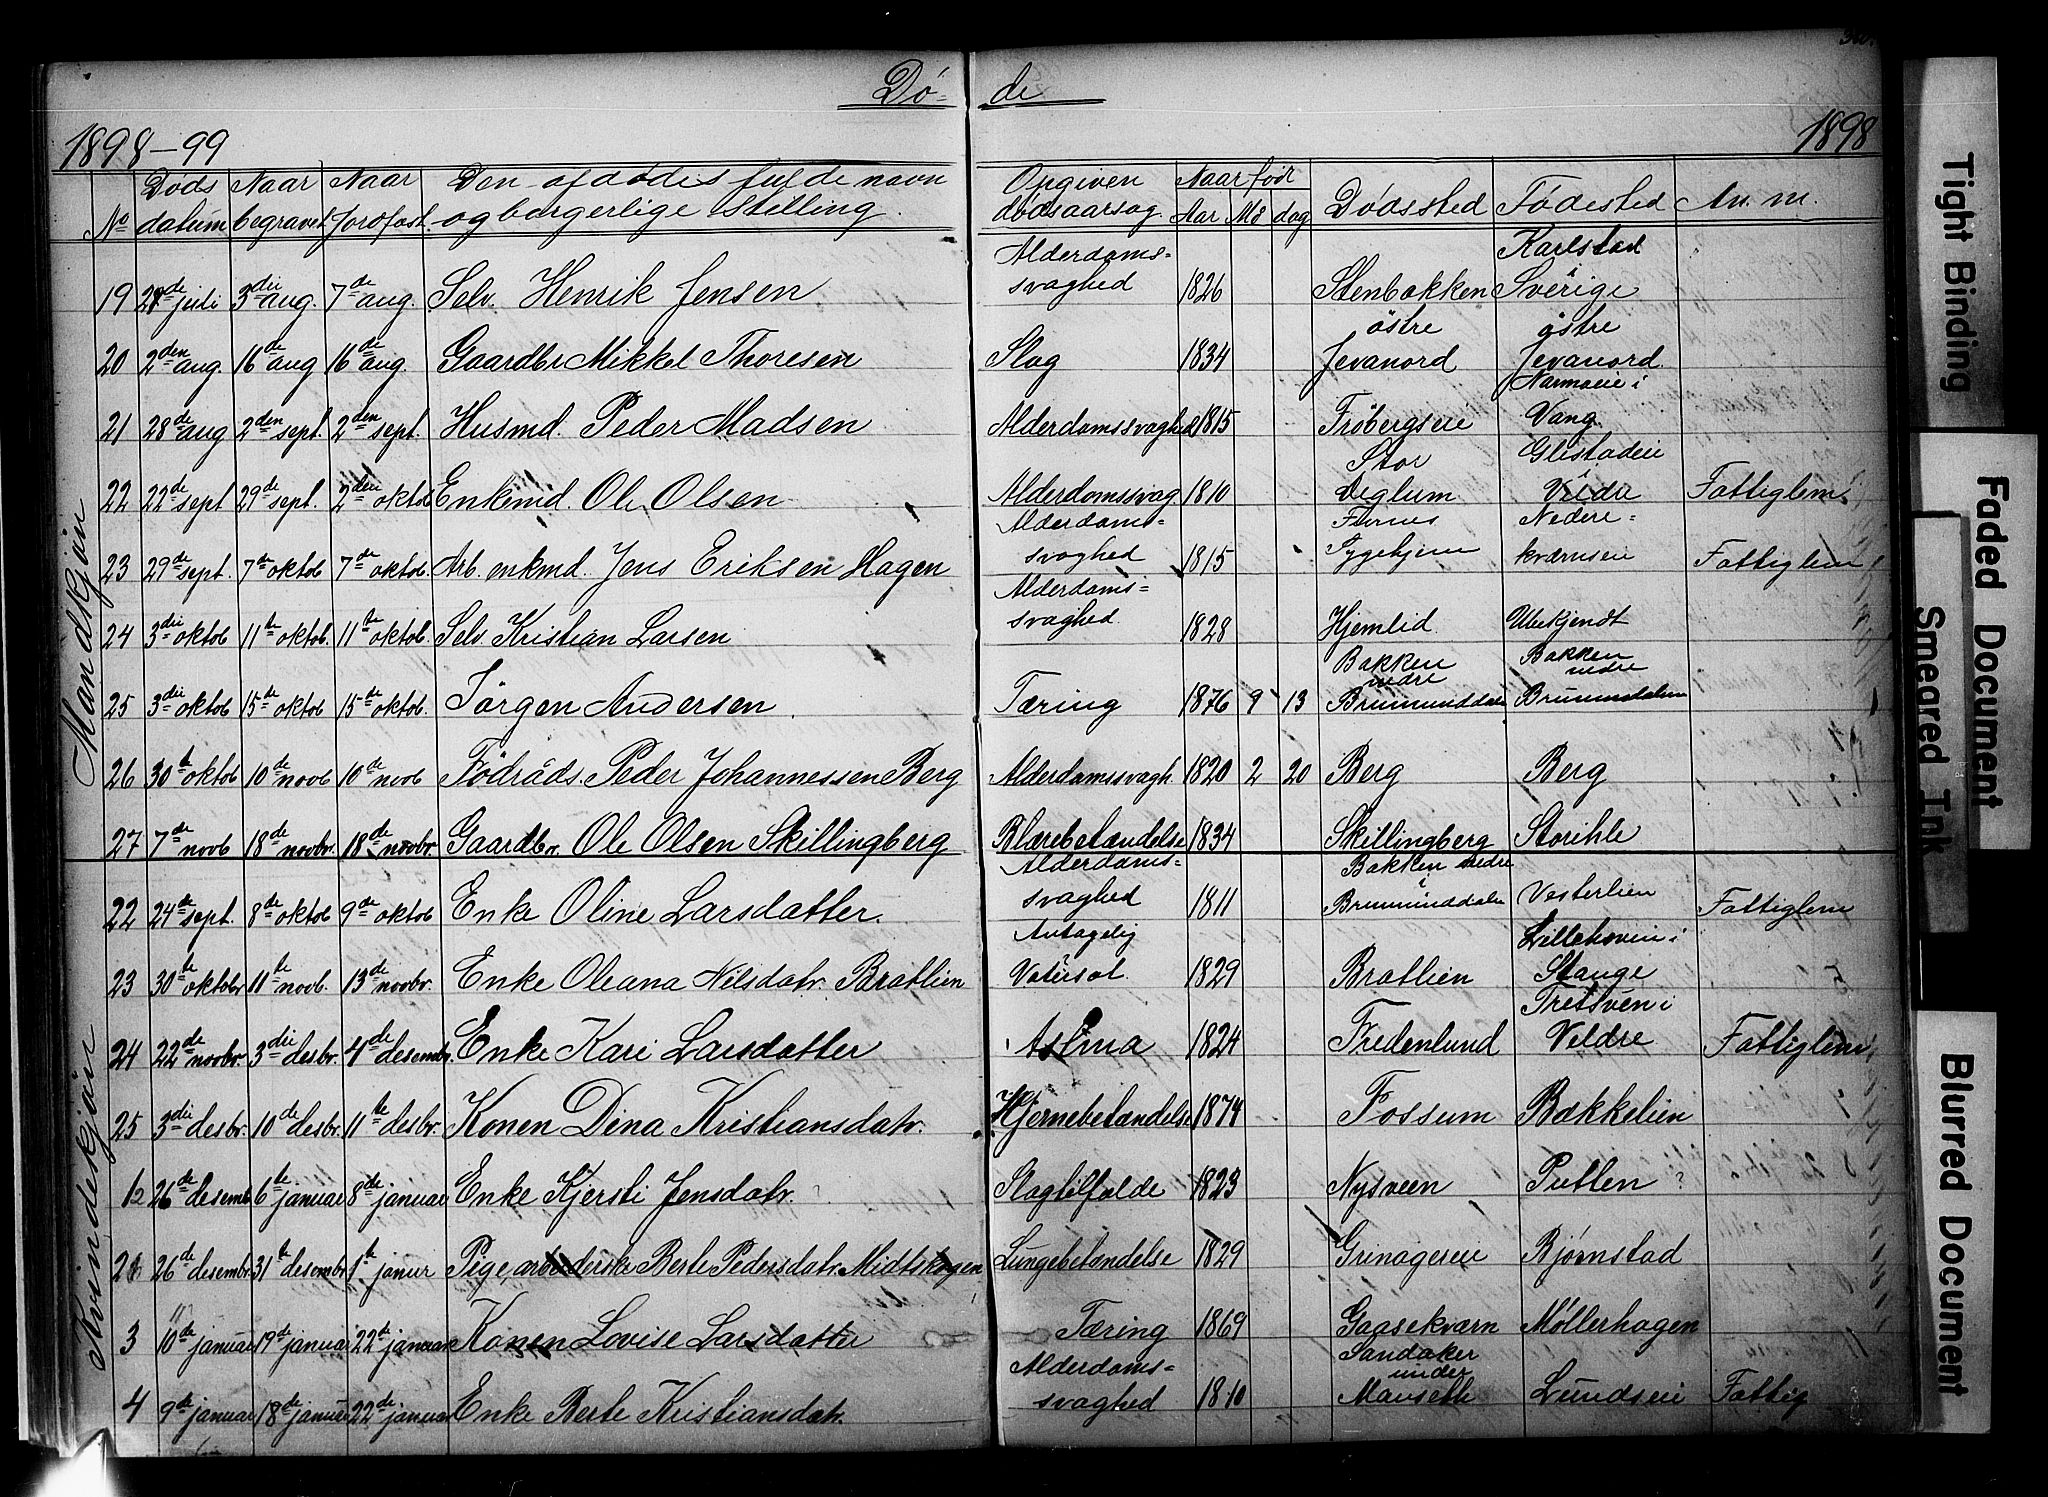 Dö- de
1898-99 1898
No Döds datum Naar begravet Naar jordfæst. Den afdödes fulde navn og borgerlige stilling. Opgiven dødsaarsag. Naar född Aar Mo dag Dödssted Födested An. m.
Mandskjön
19 28de juli 3die aug. 7de aug. Selv. Henrik Jensen Alderdoms-svaghed 1826 Stenbakken Karlstad i Sverige
20 2den aug 16de aug 16de aug. Gaardbr Mikkel Thoresen Slag 1834 östre Jevanord östre Jevanord.
21 28de aug 2den sept. 2den sept. Husmd. Peder Madsen Alderdomssvaghed 1815 Fröbergseie i Vang
22 22de sept 29de sept. 2den oktob Enkemd. Ole Olsen Alderdomssvag 1810 Stor Deglum Glistadeie i Veldre Fattiglem
23 29de sept. 7de oktob 7de oktob. Arb. enkmd. Jens Eriksen Hagen Alderdoms-svaghed 1815 Furnes Sygehjem Nedre-kværnseie Fattiglem
24 3die oktob 11te oktob. 11te oktob. Selv. Kristian Larsen Alderdoms-svaghed. 1828 Hjemlid. Ubekjendt
25 3die oktob 15de oktob 15de oktob. Jörgen Andersen Tæring 1876 9 13 Bakken nedre Brumunddalen Bakken nedre Brumundalen
26 30te oktob 10de novb 10de novb Födråds. Peder Johannessen Berg Alderdomssvagh. 1820 2 20 Berg Berg
27 7de novb 18de novbr. 18de novbr. Gaardbr. Ole Olsen Skillingberg Blærebetændelse 1834 Skillingberg Storihle
Kvindeskjön
22 24de sept. 8de oktob 9de oktob Enke Oline Larsdatter. Alderdoms-svaghed 1811 Bakken nedre i Brumunddalen Vesterlien Fattiglem
23 30te oktobr 11te novb. 13de novbr. Enke Oleana Nilsdatr. Bratlien Antagelig Vatersot. 1829 Bratlien Lillehoven i Stange
24 22de novbr. 3die desbr. 4de desembr. Enke Kari Larsdatter Astma 1824 Fredenlund Tresven i Veldre Fattiglem
25 3die desbr. 10de desbr. 11te desbr. Konen Dina Kristiansdatr. Hjernebetændelse 1874 Fossum Bækkelien
1 26de desemb 6te januar 8de januar Enke Kjersti Jensdatr. Slagtilfælde 1823 Nysveen Putten ?
2 26de desembr. 31te desembr 1te janur Pige, arbeiderske Berte Pedersdatr. Midtskogen Lungebetændelse 1829 Grinageseie Bjørnstad
3 10de januar 19de januar 22de januar Konen Lovise Larsdatter Tæring 1869 Gaasekværn Møllerhagen
4 9de januar 18de januar 22de januar Enke Berte Kristiansdatr. Alderdoms-svaghed 1810 Sandaker under Mauseth Lundseie Fattig
Tight Binding
Faded Document
Smeared Ink
Blurred Document